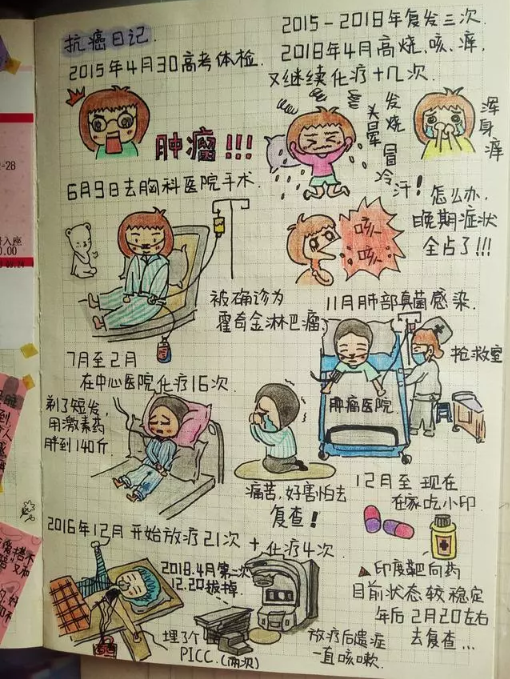 抗癌日记.
2015年4月30高考体检.
肿瘤!!!
6月9日去胸科医院手术.
被确诊为
霍奇金淋巴瘤.
7月至2月
在中心医院化疗16次.
剃了短发,
用激素药
胖到140斤.
痛苦,好害怕去
复查!
2016年12月开始放疗21次+化疗4次.
2018.4月第二次
12.20拔掉.
埋了个
PICC.(两次)
放疗后遗症
一直咳嗽.
2015-2018年复发三次.
2018年4月高烧.咳.痒.
又继续化疗十几次.
发烧
头晕
冒冷汗!
浑身痒
咳
咳
怎么办.
晚期症状
全占了!!!
11月肺部真菌感染.
抢救室
肿瘤医院
12月至现在
在家吃小印
▲印度靶向药
目前状态较稳定
年后2月20左右
去复查...